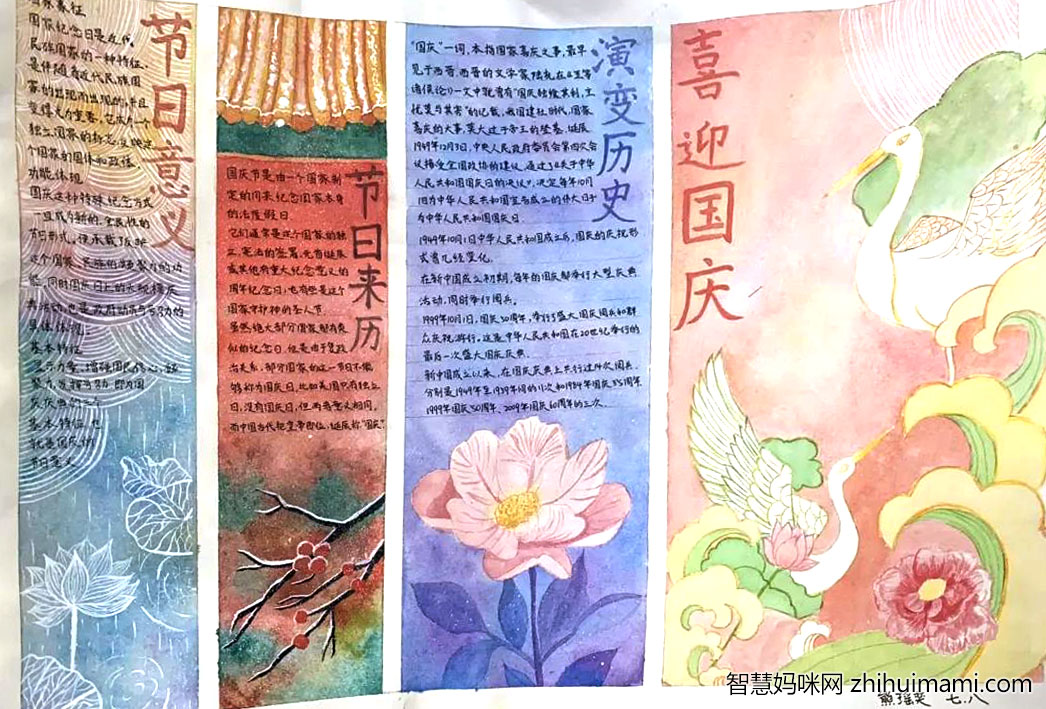 节日意义
国家象征
国家纪念日是近代
民族国家的一种特征，
是伴随着近代民族国
家的出现而出现的，并且
变得尤为重要。它成为一个
独立国家的标志，反映这
个国家的国体和政体。
功能体现
国庆这种特殊纪念方式
一旦成为新的、全民性的
节日形式，便承载了反映
这个国家、民族的凝聚力的功
能。同时国庆日上的大规模庆
典活动，也是政府动员与号召力的
具体体现。
基本特征
显示力量、增强国民信心，
凝聚力，发挥号召力，即为国
庆庆典的三个
基本特征。也
就是国庆的
节日意义
节日来历
国庆节是由一个国家制
定的用来纪念国家本身
的法定假日。
它们通常是这个国家的独
立、宪法的签署、元首诞辰
或其他有重大纪念意义的
周年纪念日，也有些是这个
国家守护神的圣人节。
虽然绝大部分国家都有类
似的纪念日，但是由于复杂
政治关系，部分国家的这一节日不能
够称为国庆日，比如美国只有独立
日，没有国庆日，但两者意义相同。
而中国古代把皇帝即位、诞辰称“国庆”
演变历史
“国庆”一词，本指国家喜庆之事，最早
见于西晋。西晋的文学家陆机在《五等
诸侯论》一文中就曾有“国庆独飨其利，主
忧莫与其害”的记载，我国封建社时代、国家
喜庆的大事，莫大过于帝王的登基、诞辰
1949年12月3日，中央人民政府委员会第四次会
议接受全国政协的建议，通过了《关于中华
人民共和国国庆日的决议》，决定每年10月
1日为中华人民共和国宣告成立的伟大日子
为中华人民共和国国庆日。
1949年10月1日中华人民共和国成立后，国庆的庆祝形
式曾几经变化。
在新中国成立初期，每年的国庆都举行大型庆典
活动，同时举行阅兵。
1999年10月1日，国庆50周年，举行了盛大国庆阅兵和群
众庆祝游行。这是中华人民共和国在20世纪举行的
最后一次盛大国庆庆典。
新中国成立以来，在国庆庆典上共进行过14次阅兵。
分别是1949年至1959年间的11次和1984年国庆35周年
1999年国庆50周年、2009年国庆60周年的三次。
喜迎国庆
智慧妈咪网 zhihuimami.com
熊瑶笑 七.八